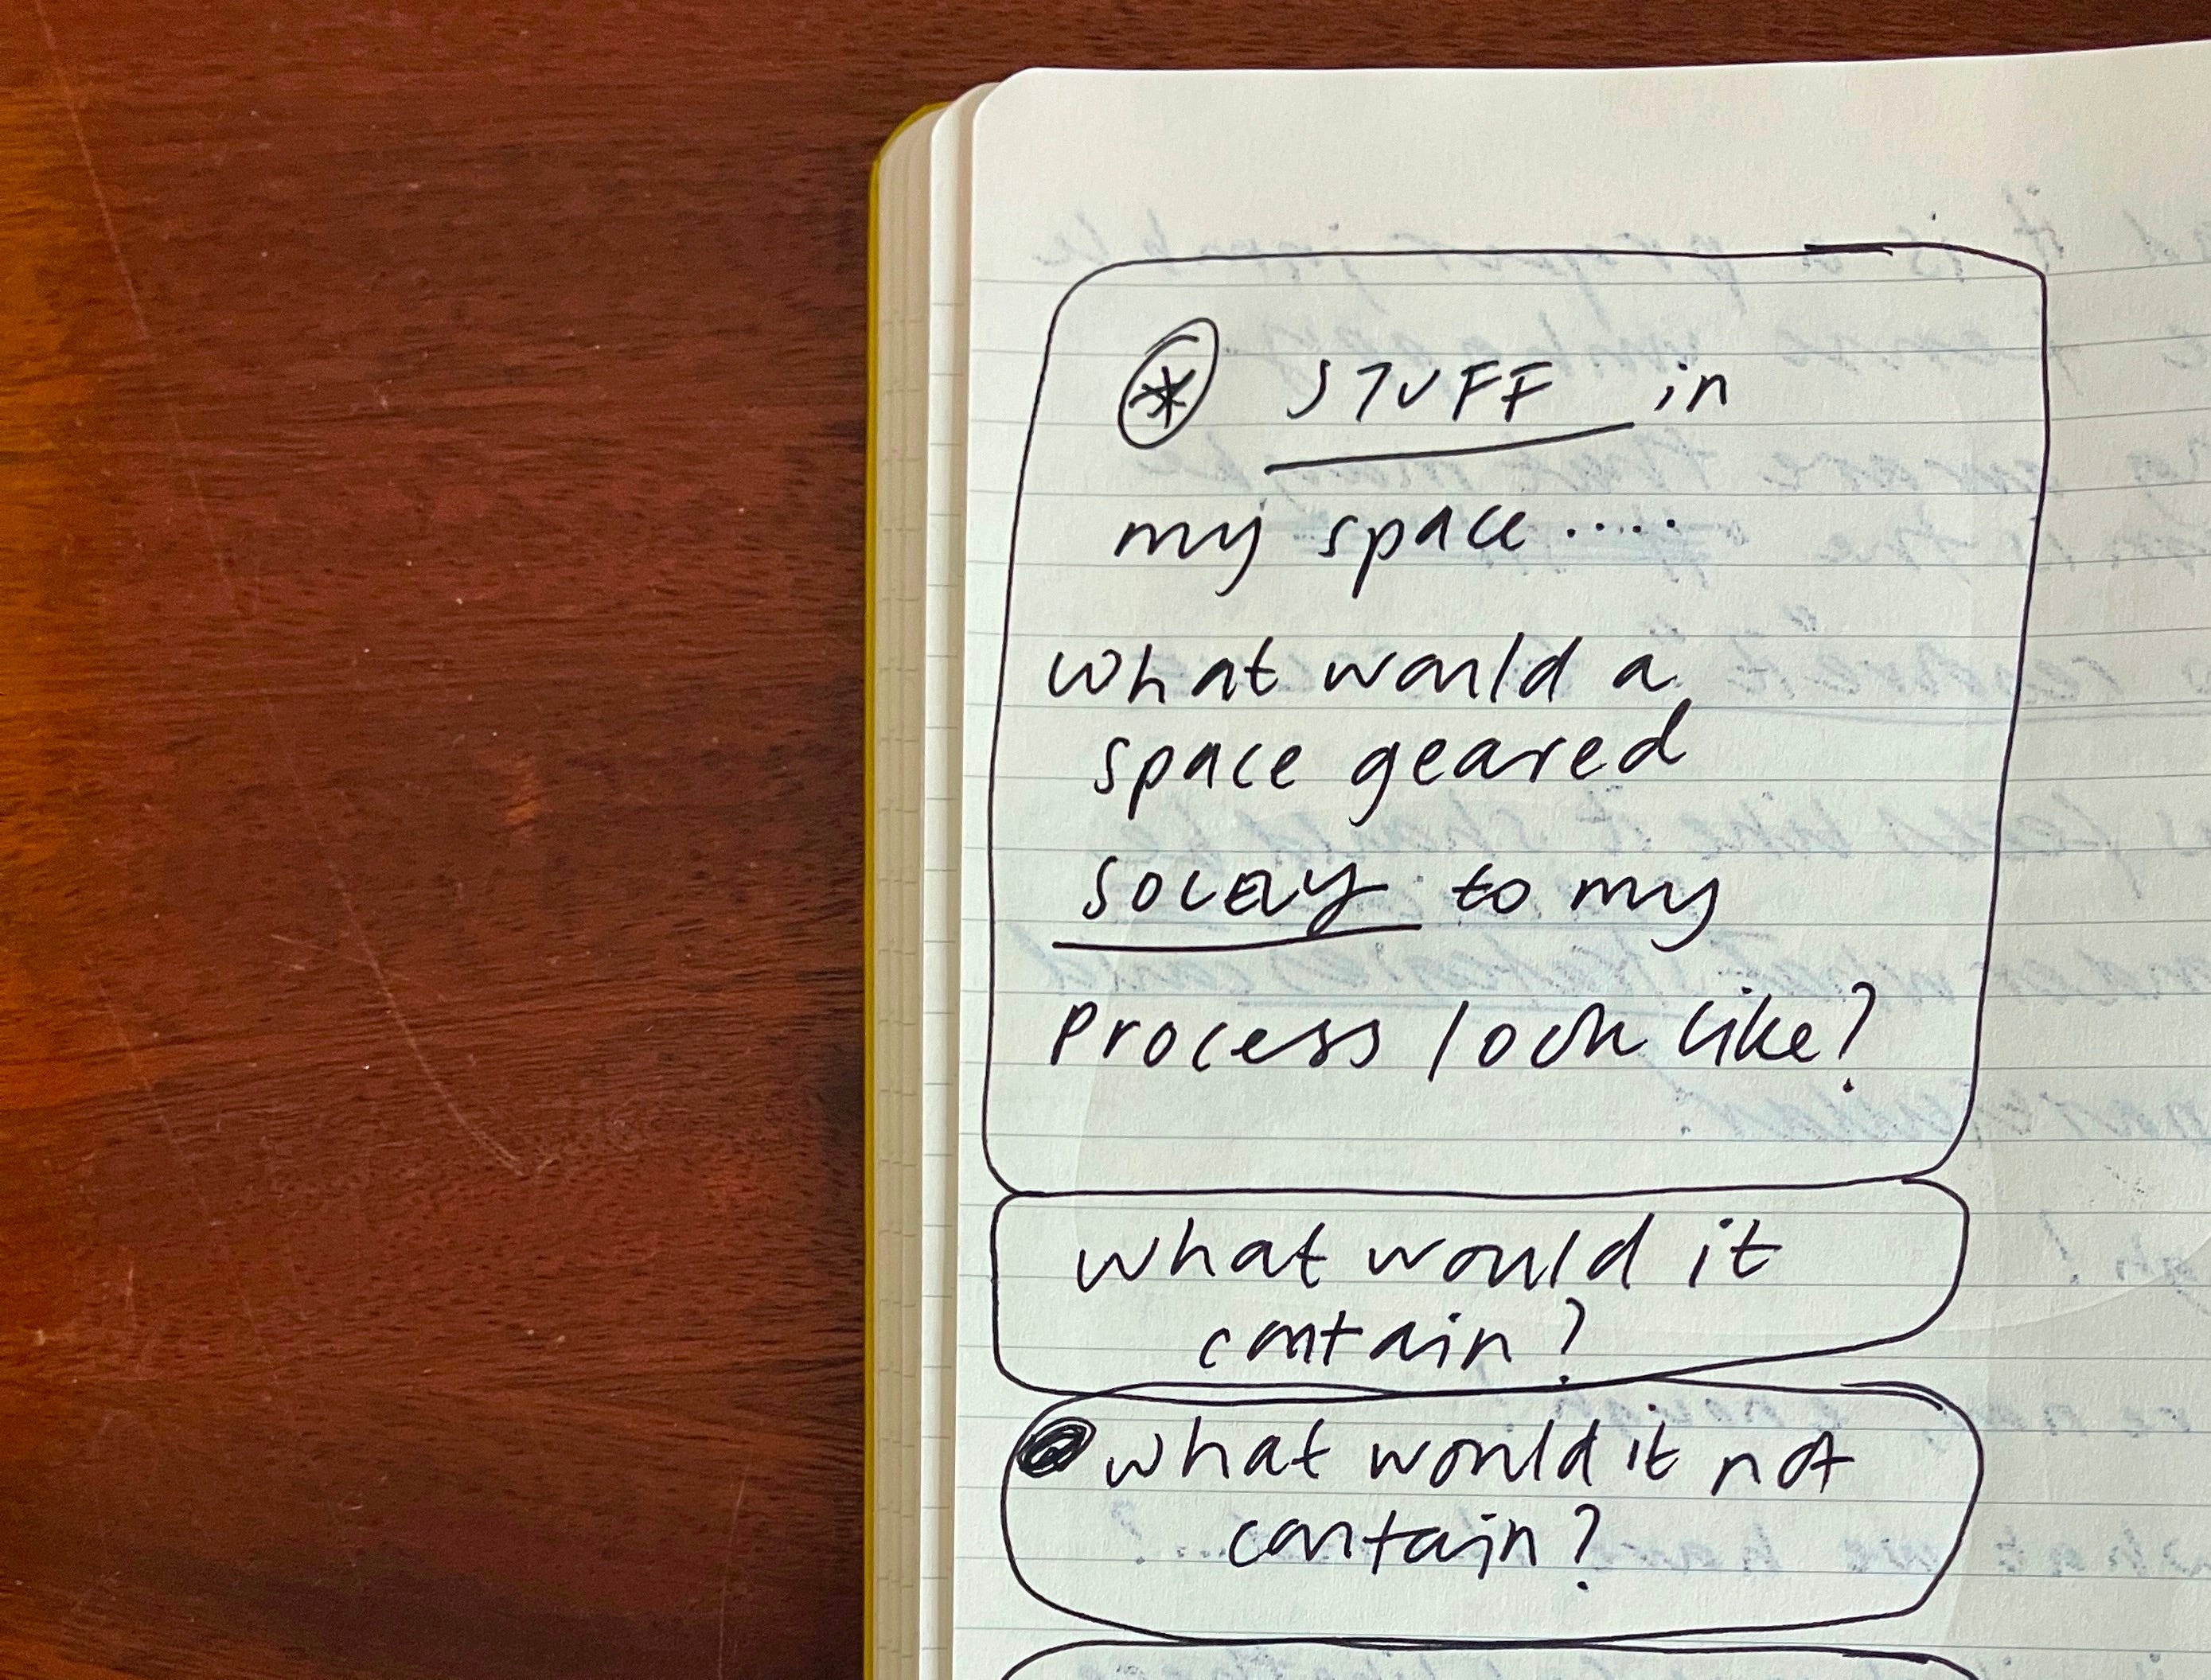 * STUFF in
my space....
what would a
space geared
solely to my
process look like?
what would it
contain?
what would it not
contain?